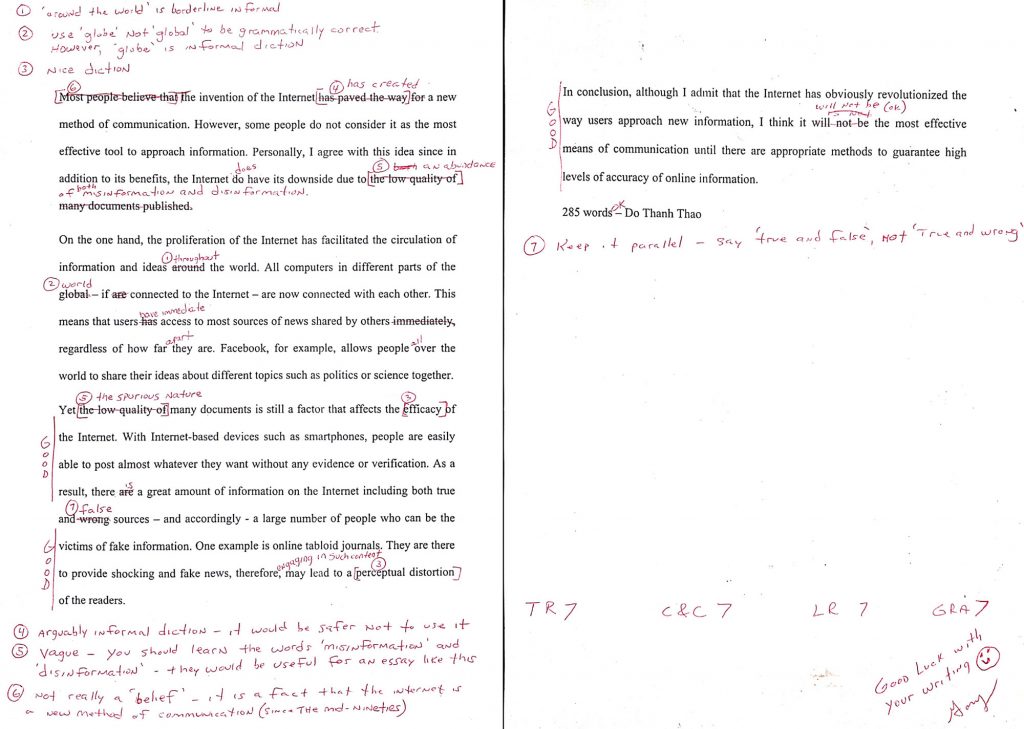 ① 'around the world' is borderline informal
② use 'globe' not 'global' to be grammatically correct.
However, 'globe' is informal diction
③ Nice diction
⑥ ④ has created
[Most people believe that] The invention of the Internet [has paved the way] for a new
method of communication. However, some people do not consider it as the most
effective tool to approach information. Personally, I agree with this idea since in
does ⑤ both an abundance
addition to its benefits, the Internet do have its downside due to [the low quality of]
of both misinformation and disinformation.
many documents published.
On the one hand, the proliferation of the Internet has facilitated the circulation of
① throughout
information and ideas around the world. All computers in different parts of the
② world
global – if are connected to the Internet – are now connected with each other. This
have immediate
means that users has access to most sources of news shared by others immediately,
apart all
regardless of how far they are. Facebook, for example, allows people over the
world to share their ideas about different topics such as politics or science together.
⑤ the spurious nature ③
Yet [the low quality of] many documents is still a factor that affects the [efficacy] of
GOOD
the Internet. With Internet-based devices such as smartphones, people are easily
able to post almost whatever they want without any evidence or verification. As a
is
result, there are a great amount of information on the Internet including both true
⑦ false
and wrong sources – and accordingly - a large number of people who can be the
GOOD
victims of fake information. One example is online tabloid journals. They are there
engaging in such content ③
to provide shocking and fake news, therefore, may lead to a [perceptual distortion]
of the readers.
④ Arguably informal diction – it would be safer not to use it
⑤ Vague – you should learn the words 'misinformation' and
'disinformation' - they would be useful for an essay like this
⑥ Not really a "belief" – it is a fact that the internet is
a new method of communication (since the mid-nineties)
GOOD
In conclusion, although I admit that the Internet has obviously revolutionized the
will not be (ok)
is not
way users approach new information, I think it will not be the most effective
means of communication until there are appropriate methods to guarantee high
levels of accuracy of online information.
OK
285 words – Do Thanh Thao
⑦ Keep it parallel – say 'true and false', not 'true and wrong'
TR 7 C&C 7 LR 7 GRA 7
Good Luck with
your writing